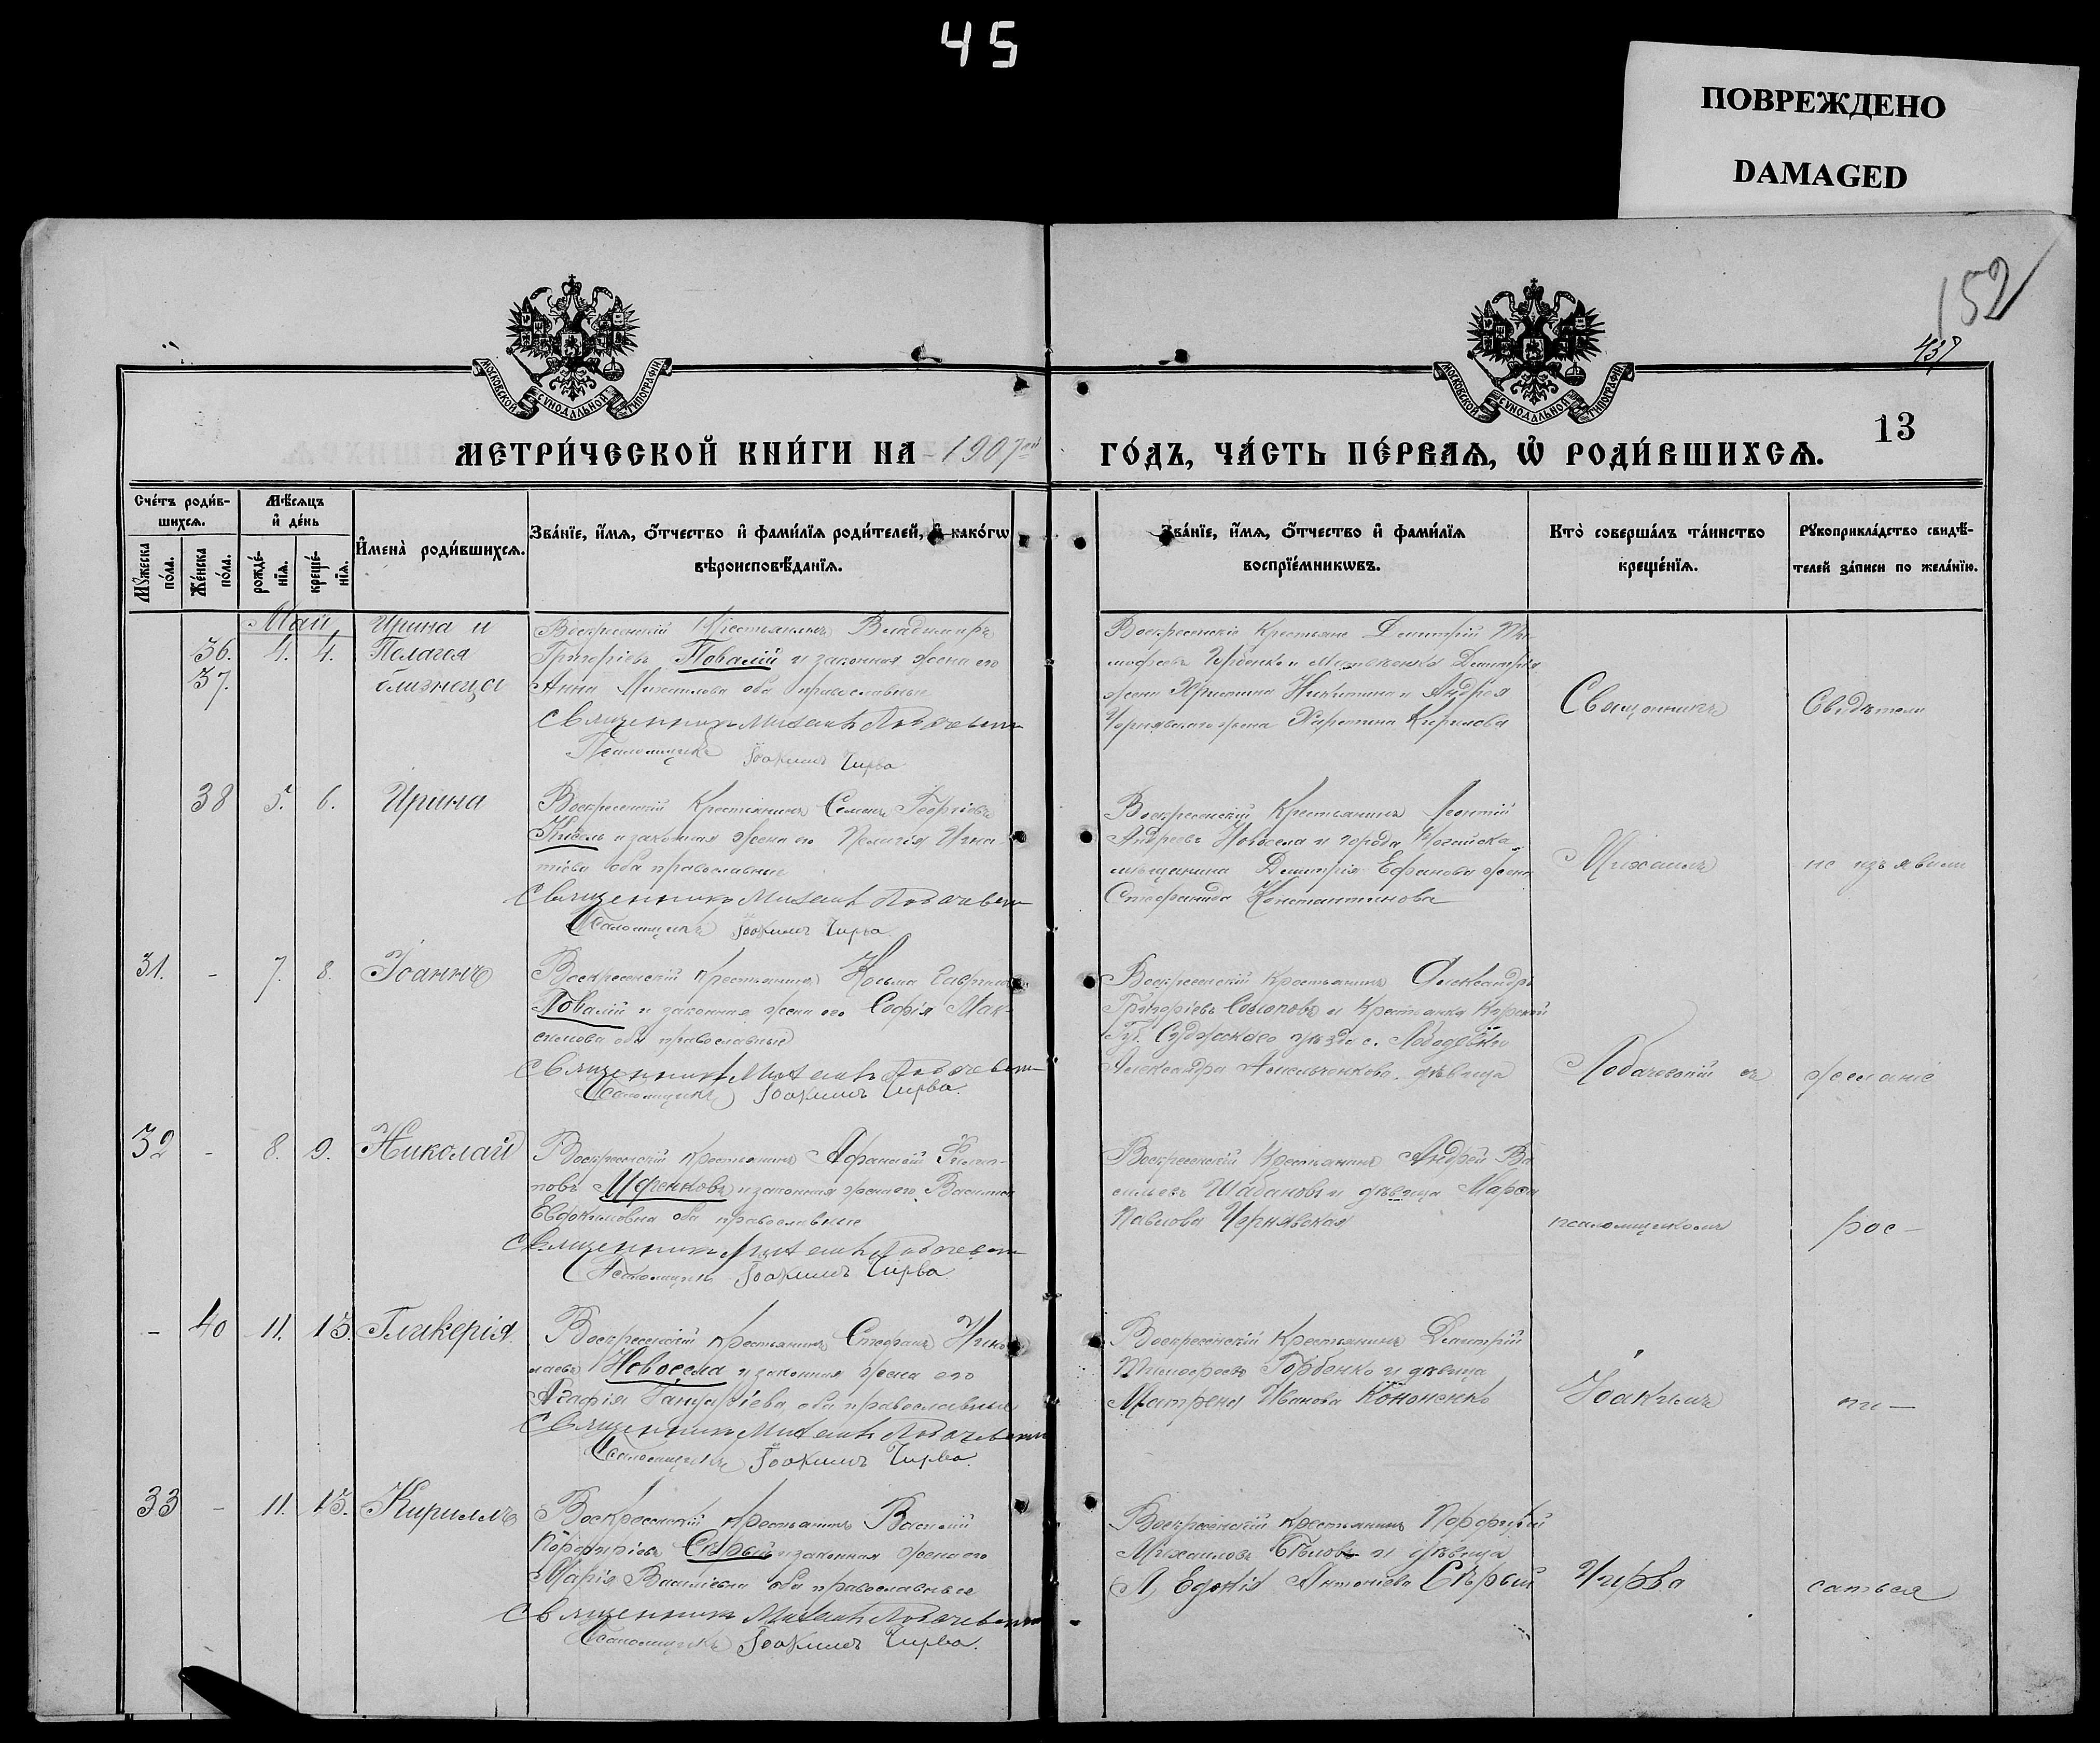 45
ПОВРЕЖДЕНО
DAMAGED
152
437
13
МОСКОВСКОЙ СѴНОДАЛЬНОЙ ТИПОГРАФІИ
МОСКОВСКОЙ СѴНОДАЛЬНОЙ ТИПОГРАФІИ
МЕТРИ́ЧЕСКОЙ КНИ́ГИ НА 1907 ГО́ДЪ, ЧА́СТЬ ПЕ́РВАѦ, Ѡ РОДИ́ВШИХСѦ.
Сче́тъ роди́в-
шихсѧ.
Мꙋжеска по́ла.
Же́нска по́ла.
Мѣ́сѧцъ
и҆ де́нь
рожде́-
нїѧ.
креще́-
нїѧ.
И҆мена̀ роди́вшихсѧ.
Зва́нїе, и҆́мѧ, ѻ҆́тчество и҆ фами́лїѧ роди́телей, и҆ како́гѡ
вѣроисповѣ́данїѧ.
Зва́нїе, и҆́мѧ, ѻ҆́тчество и҆ фами́лїѧ
воспрїе́мникѡвъ.
Кто̀ соверша́лъ та́инство
креще́нїѧ.
Рꙋкоприкла́дство свидѣ́-
телей за́писи по жела́нїю.
Май
36. 4. 4. Ирина и
37. Пелагея
близнецы
Воскресенскій Крестьянинъ Владиміръ
Григоріевъ Повалій и законная жена его
Анна Михайлова оба православные
Священникъ Михаилъ Лобачевскій
Псаломщикъ Іоакимъ Чирва
Воскресенскіе крестьяне Димитрій Ти-
мофеевъ Горбенко и Димитрія
жена Христина Никитина и Андрея
Чернявскаго жена Харитина Кирилова
Священникъ
Свидѣтели
38 5. 6. Ирина
Воскресенскій Крестьянинъ Семенъ Георгіевъ
Кисель и законная жена его Пелагія Игна-
тіева оба православные
Священникъ Михаилъ Лобачевскій
Псаломщикъ Іоакимъ Чирва.
Воскресенскій Крестьянинъ Леонтій
Андреевъ Новосела и города Ногайска
мѣщанина Димитрія Ефанова жена
Стефанида Константинова
Михаилъ
не изъявили
31. - 7. 8. Іоаннъ
Воскресенскій Крестьянинъ Косьма
Повалій и законная жена его Софія Мак-
симова оба православные
Священникъ Михаилъ Лобачевскій
Псаломщикъ Іоакимъ Чирва.
Воскресенскій Крестьянинъ Александръ
Григоріевъ и Крестьянка Курской
Губ. Суджскаго уѣзда с.
Александра дѣвица
Лобачевскій съ
желаніе
32 - 8. 9. Николай
Воскресенскій Крестьянинъ Афанасій Филип-
повъ и законная жена его Василиса
Евдокимовна оба православные
Священникъ Михаилъ Лобачевскій
Псаломщикъ Іоакимъ Чирва.
Воскресенскій Крестьянинъ Андрей Ва-
сильевъ Шабановъ и дѣвица Марѳа
Павлова Чернявская
псаломщикомъ
рос-
- 40 11. 13. Гликерія.
Воскресенскій Крестьянинъ Стефанъ Нико-
лаевъ Новосела и законная жена его
Агафія оба православные
Священникъ Михаилъ Лобачевскій
Псаломщикъ Іоакимъ Чирва.
Воскресенскій Крестьянинъ Димитрій
Тимофеевъ Горбенко и дѣвица
Матрена Иванова Кононенко
Іоакимъ
пи-
33 - 11. 13. Кириллъ
Воскресенскій Крестьянинъ Василій
Порфиріевъ Сѣрый и законная жена его
Марія Васильевна оба православные
Священникъ Михаилъ Лобачевскій
Псаломщикъ Іоакимъ Чирва.
Воскресенскій Крестьянинъ Порфирій
Михаиловъ Бѣловъ и дѣвица
Антонова Сѣрый
Чирва
саться